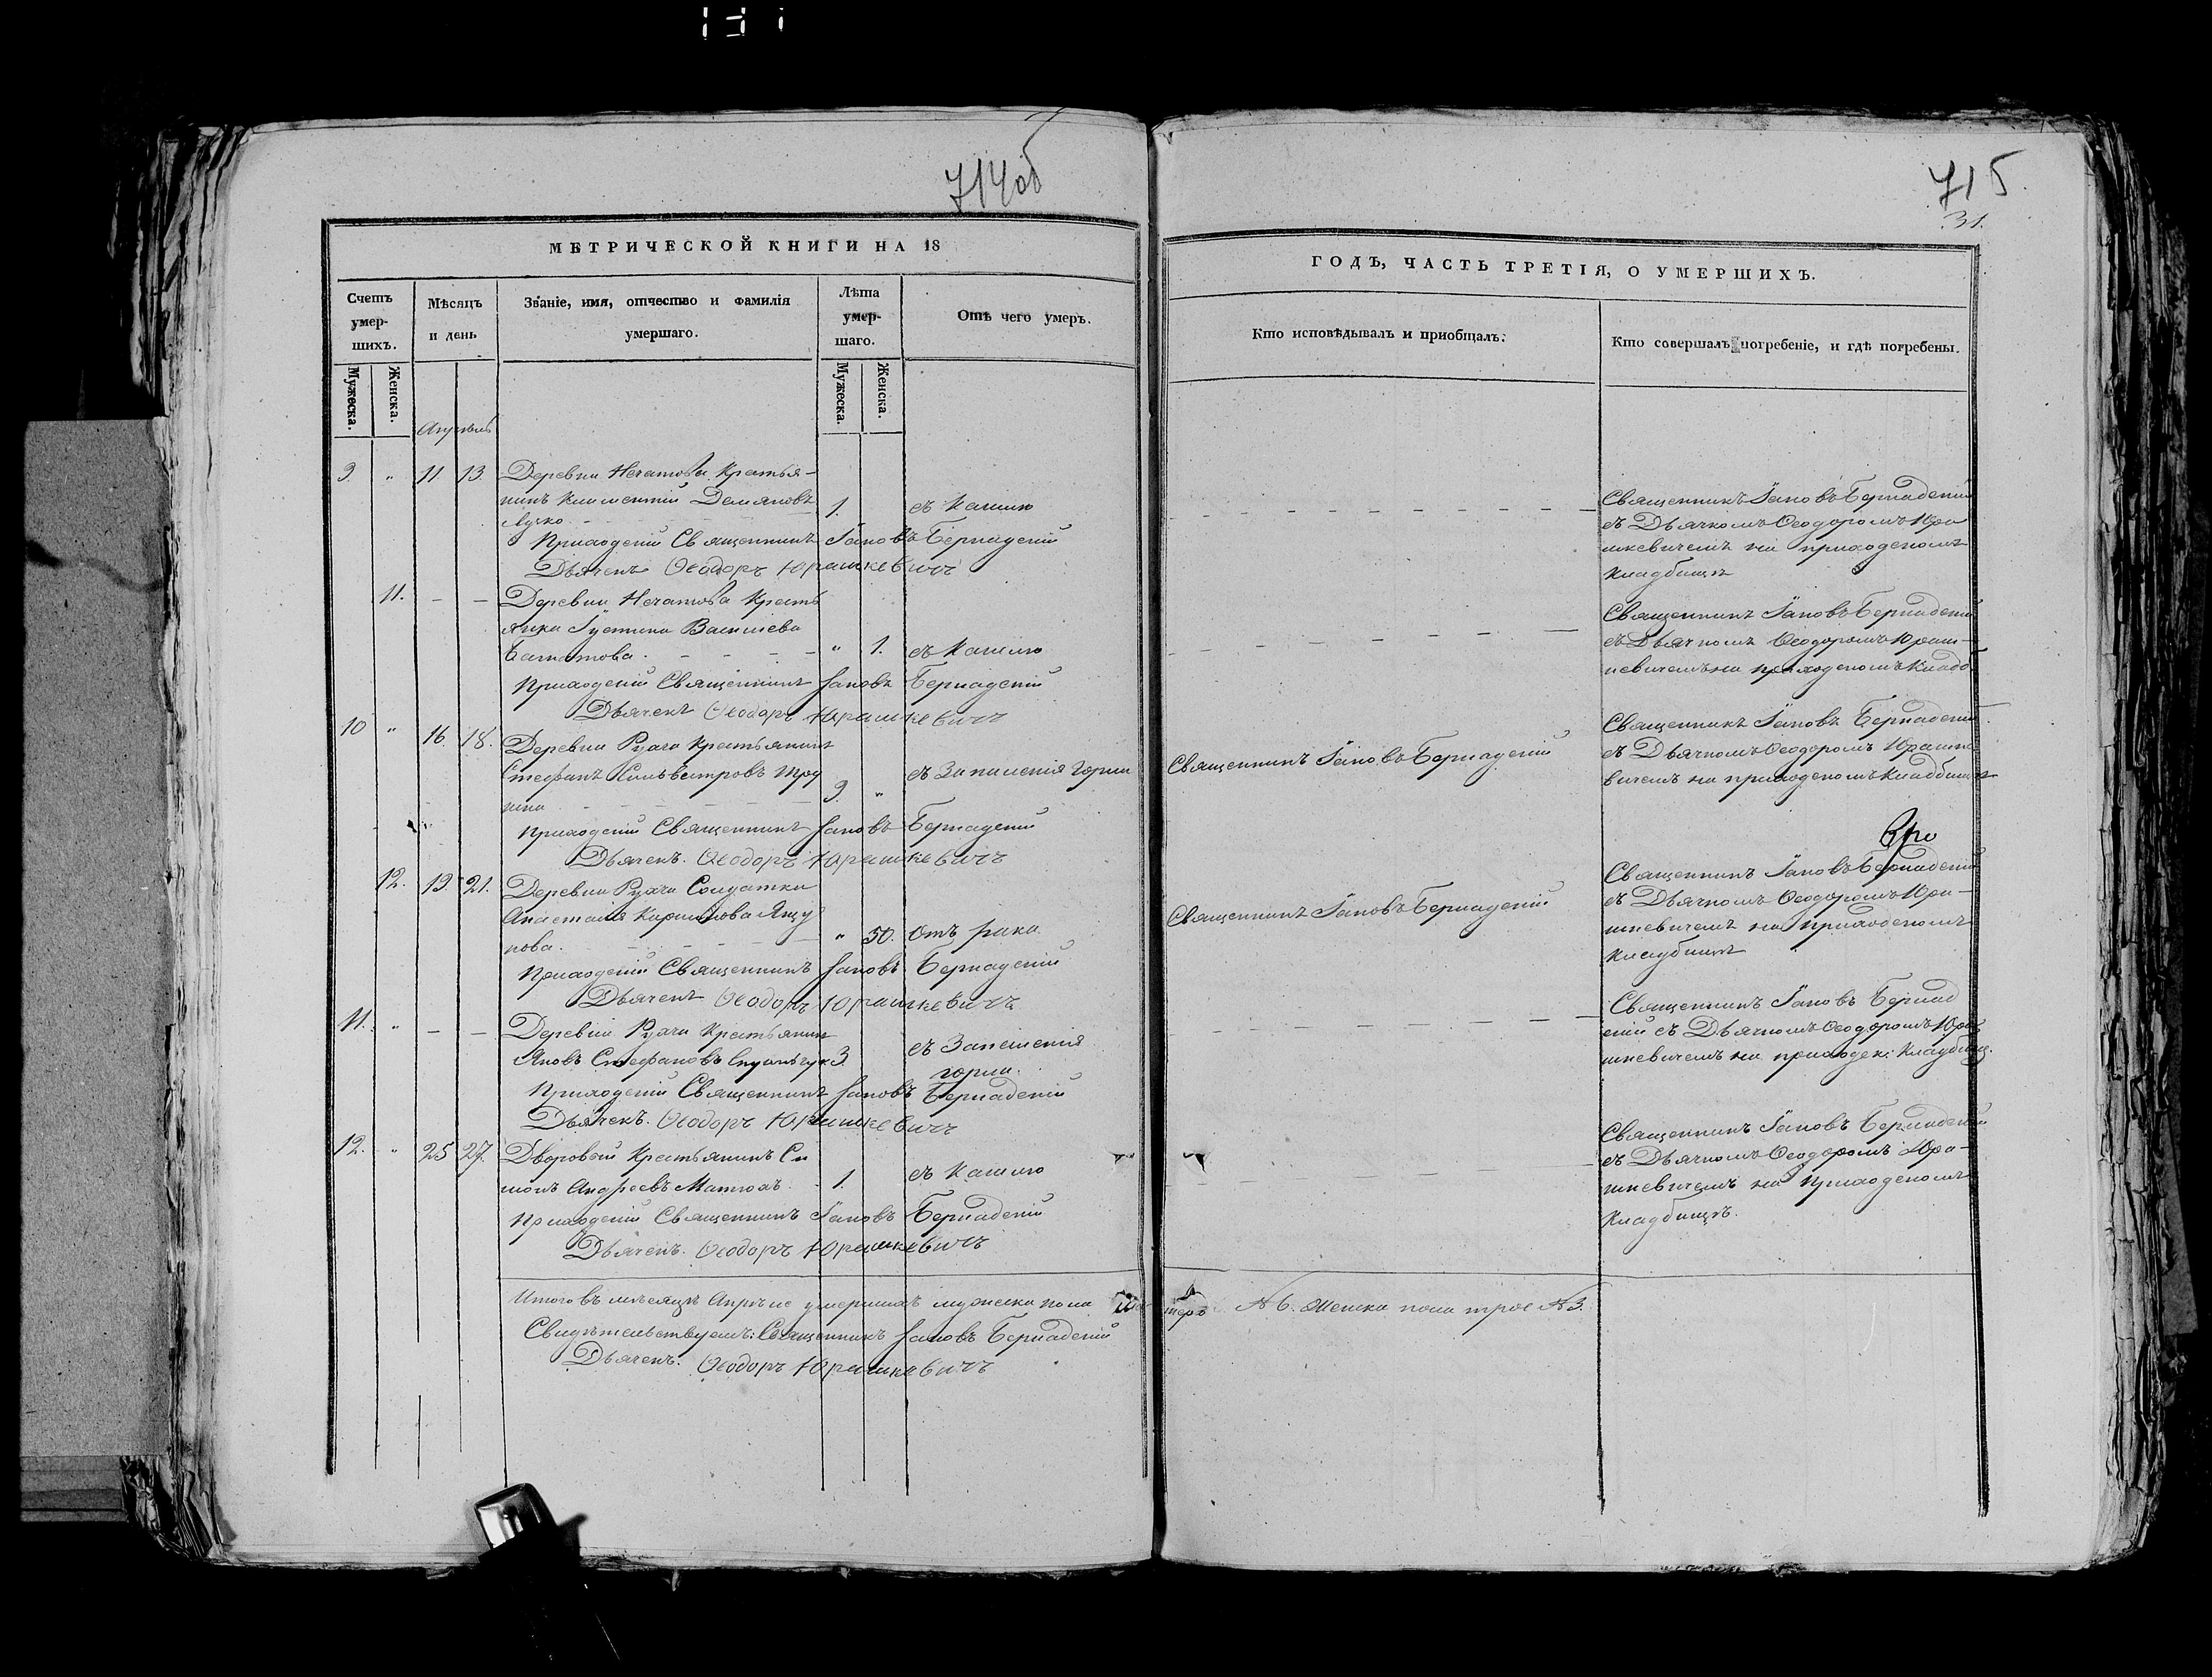 714об
МЕТРИЧЕСКОЙ КНИГИ НА 18
Счетъ умер-шихъ.
Мѣсяцъ и день
Званіе, имя, отчество и фамилія умершаго.
Лѣта умер-шаго.
Отъ чего умеръ.
Мужеска.
Женска.
Мужеска.
Женска.
Апрѣль
9. " 11 13. Деревни Нечатова Крестья-
нинъ Климентій Демяновъ
Лучко 1. съ Кашлю
Приходскій Священникъ Іаковъ Бернадскій
Дьячекъ Ѳеодоръ Юрашкевичъ
11. — — Деревни Нечатова Кресть
янка Іустина Васильева
" 1. съ Кашлю
Приходскій Священникъ Іаковъ Бернадскій
Дьячекъ Ѳеодоръ Юрашкевичъ
10 " 16. 18. Деревни Рухчи Крестьянинъ
Стефанъ Сильвестровъ
9. " съ Запаленія Горла
Приходскій Священникъ Іаковъ Бернадскій
Дьячекъ. Ѳеодоръ Юрашкевичъ
12. 19. 21. Деревни Рухчи Солдатка
Анастасія
нова. " 50. Отъ рака
Приходскій Священникъ Іаковъ Бернадскій
Дьячекъ Ѳеодоръ Юрашкевичъ
11. " — — Деревни Рухчи Крестьянинъ
Яковъ Стефановъ 3. съ Запаленія
горла.
Приходскій Священникъ Іаковъ Бернадскій
Дьячекъ. Ѳеодоръ Юрашкевичъ
12. " 25 27. Дворовой Крестьянинъ Си
монъ Андреевъ Матюхъ. 1. съ Кашлю
Приходскій Священникъ Іаковъ Бернадскій
Дьячекъ. Ѳеодоръ Юрашкевичъ
Итого въ мѣсяцѣ Апрѣлѣ умершихъ мужеска пола
Свидѣтельствуемъ: Священникъ Іаковъ Бернадскій
Дьячекъ: Ѳеодоръ Юрашкевичъ
715
31.
ГОДЪ, ЧАСТЬ ТРЕТІЯ, О УМЕРШИХЪ.
Кто исповѣдывалъ и приобщалъ.
Кто совершалъ погребеніе, и гдѣ погребены.
Священникъ Іаковъ Бернадскій
съ Дьячкомъ Ѳеодоромъ Юра
шкевичемъ на приходскомъ
кладбищѣ
Священникъ Іаковъ Бернадскій
съ Дьячкомъ Ѳеодоромъ Юраш-
кевичемъ на приходскомъ Кладб
Священникъ Іаковъ Бернадскій
Священникъ Іаковъ Бернадскій
съ Дьячкомъ Ѳеодоромъ Юрашке
вичемъ на приходскомъ Кладбищѣ
Священникъ Іаковъ Бернадскій
Священникъ Іаковъ Бернадскій
съ Дьячкомъ Ѳеодоромъ Юра-
шкевичемъ на приходскомъ
Кладбищѣ
Священникъ Іаковъ Бернад
скій съ Дьячкомъ Ѳеодоромъ Юра
шкевичемъ на приходск: Кладбищ.
Священникъ Іаковъ Бернадскій
съ Дьячкомъ Ѳеодоромъ Юра-
шкевичемъ на Приходскомъ
Кладбищѣ.
№ 6. Женска пола трое № 3.